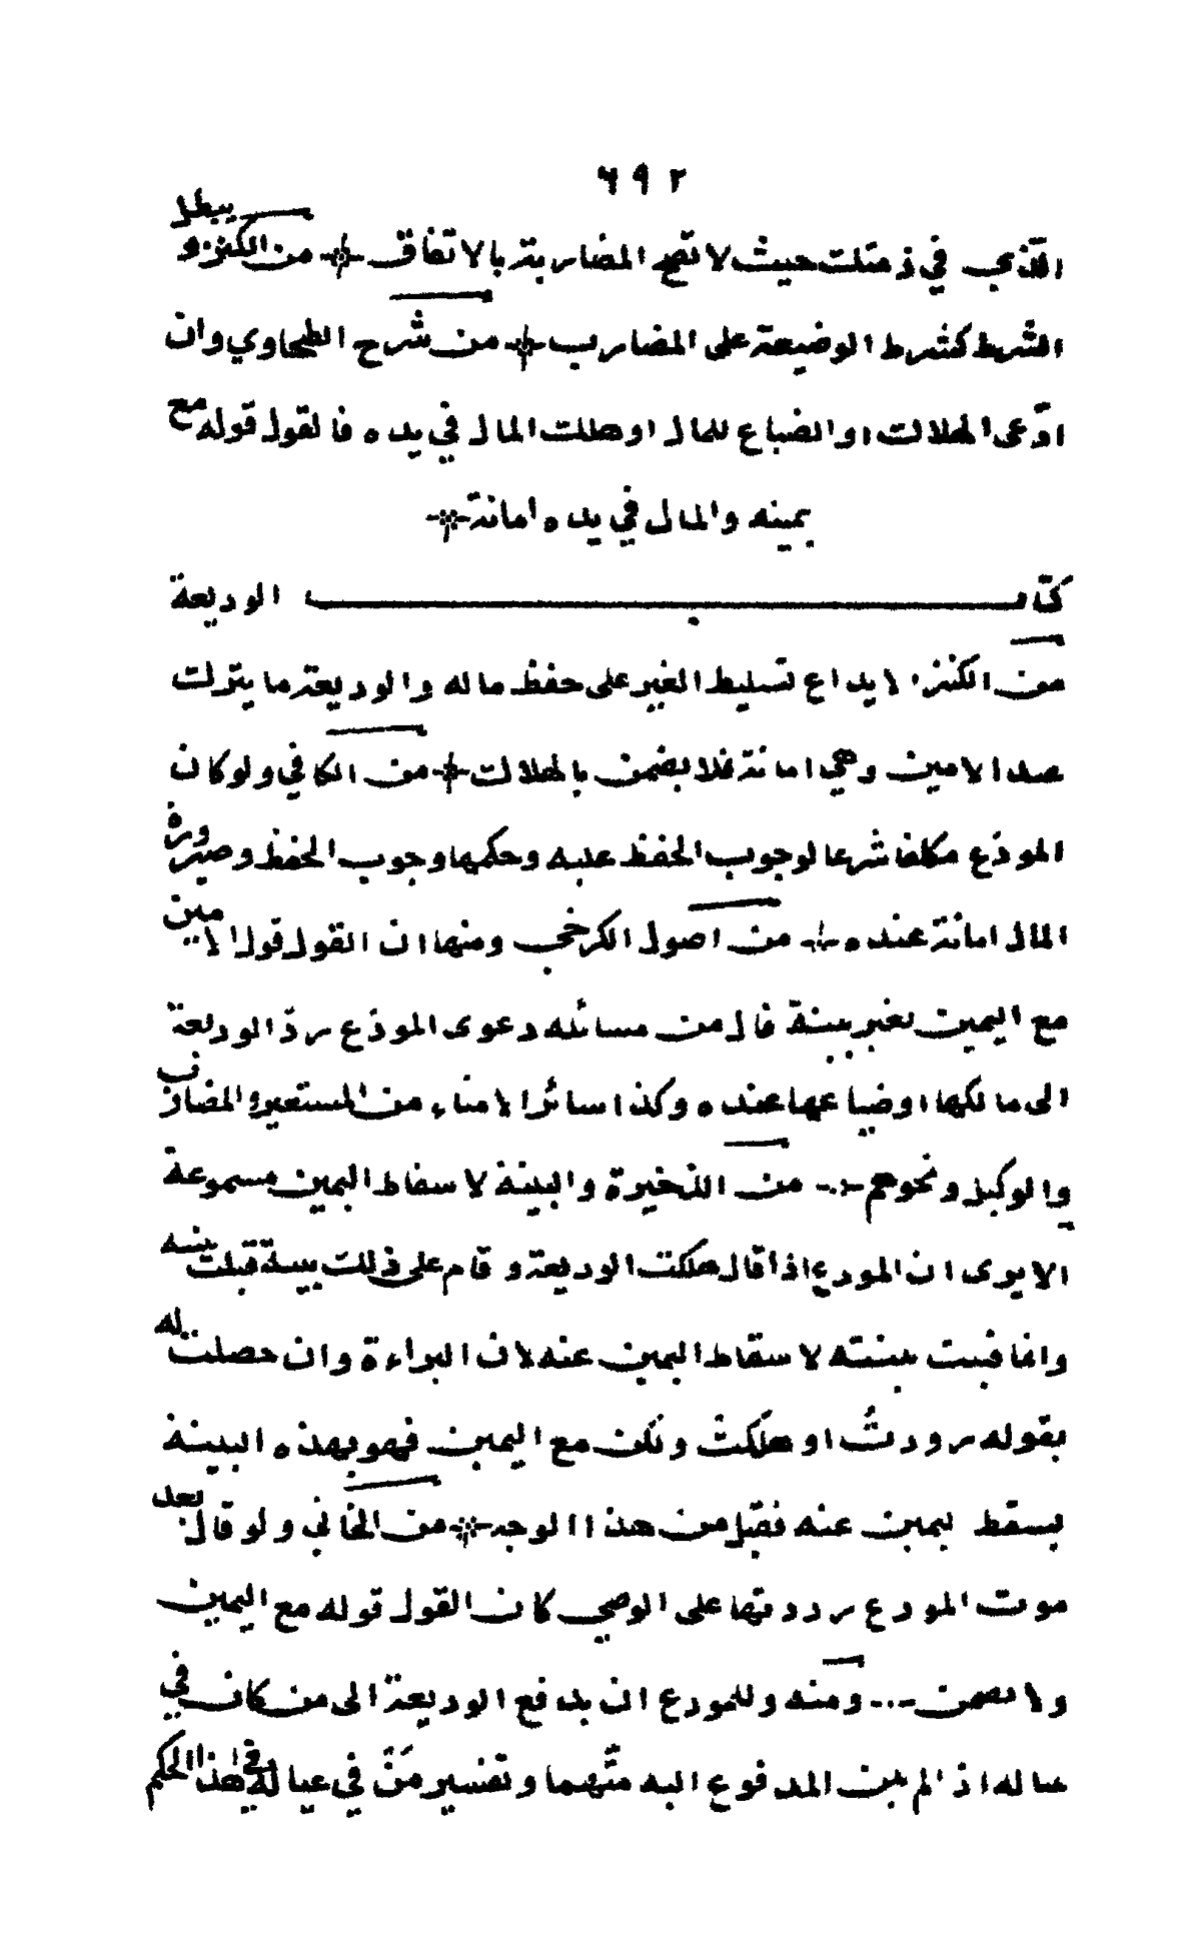 ٦٩٢
الذي في ذمتك حيث لا تصح المضاربة بالاتفاق من الكنز و يبطل
الشرط كشرط الوضيعة على المضارب من شرح الطحاوي وان
ادّعى الهلاك او الضياع للمال او هلك المال في يده فالقول قوله مع
يمينه والمال في يده امانة
كتاب الوديعة
من الكنز الايداع تسليط الغير على حفظ ماله والوديعة ما يترك
عند الامين وهي امانة فلا يضمن بالهلاك من الكافي ولو كان
المودَع مكلفا شرعا لوجوب الحفظ عليه وحكمها وجوب الحفظ وصيرورة
المال امانة عنده من اصول الكرخي ومنها ان القول قول الامين
مع اليمين بغير بينة قال من مسائله دعوى المودَع ردّ الوديعة
الى مالكها اوضياعها عنده وكذا سائر الامناء من المستعير والمضارب
والوكيل ونحوهم من الذخيرة والبينة لاسقاط اليمين مسموعة
الا يرى ان المودع اذا قال هلكت الوديعة وقام على ذلك بينة قبلت بينته
وانما قبلت بينته لاسقاط اليمين عنه لان البراءة وان حصلت له
بقوله رددتُ او هلكتْ ولكن مع اليمين فهو بهذه البينة
يسقط يمين عنه فتقبل من هذا الوجه من الخاني ولو قال بعد
موت المودع رددتها على الوصي كان القول قوله مع اليمين
ولا يضمن ومنه وللمودع ان يدفع الوديعة الى من كان في
عياله اذا لم يكن المدفوع اليه متّهما وتفسير مَنْ في عياله في هذا الحكم